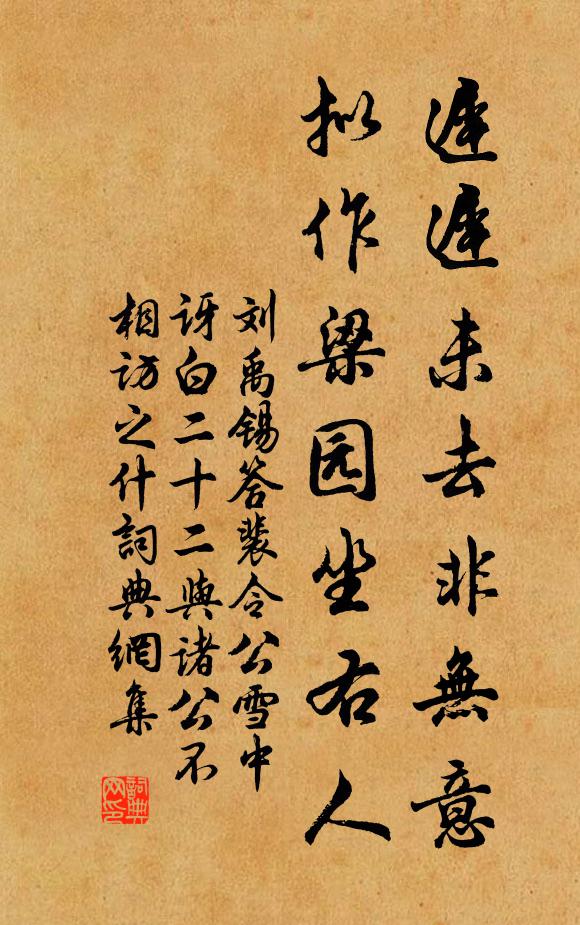 遲遲未去非無意
拟作梁园坐右人
刘禹锡答裴令公雪中
讶白二十二與诸公不
相访之什詞典網集
詞典网印